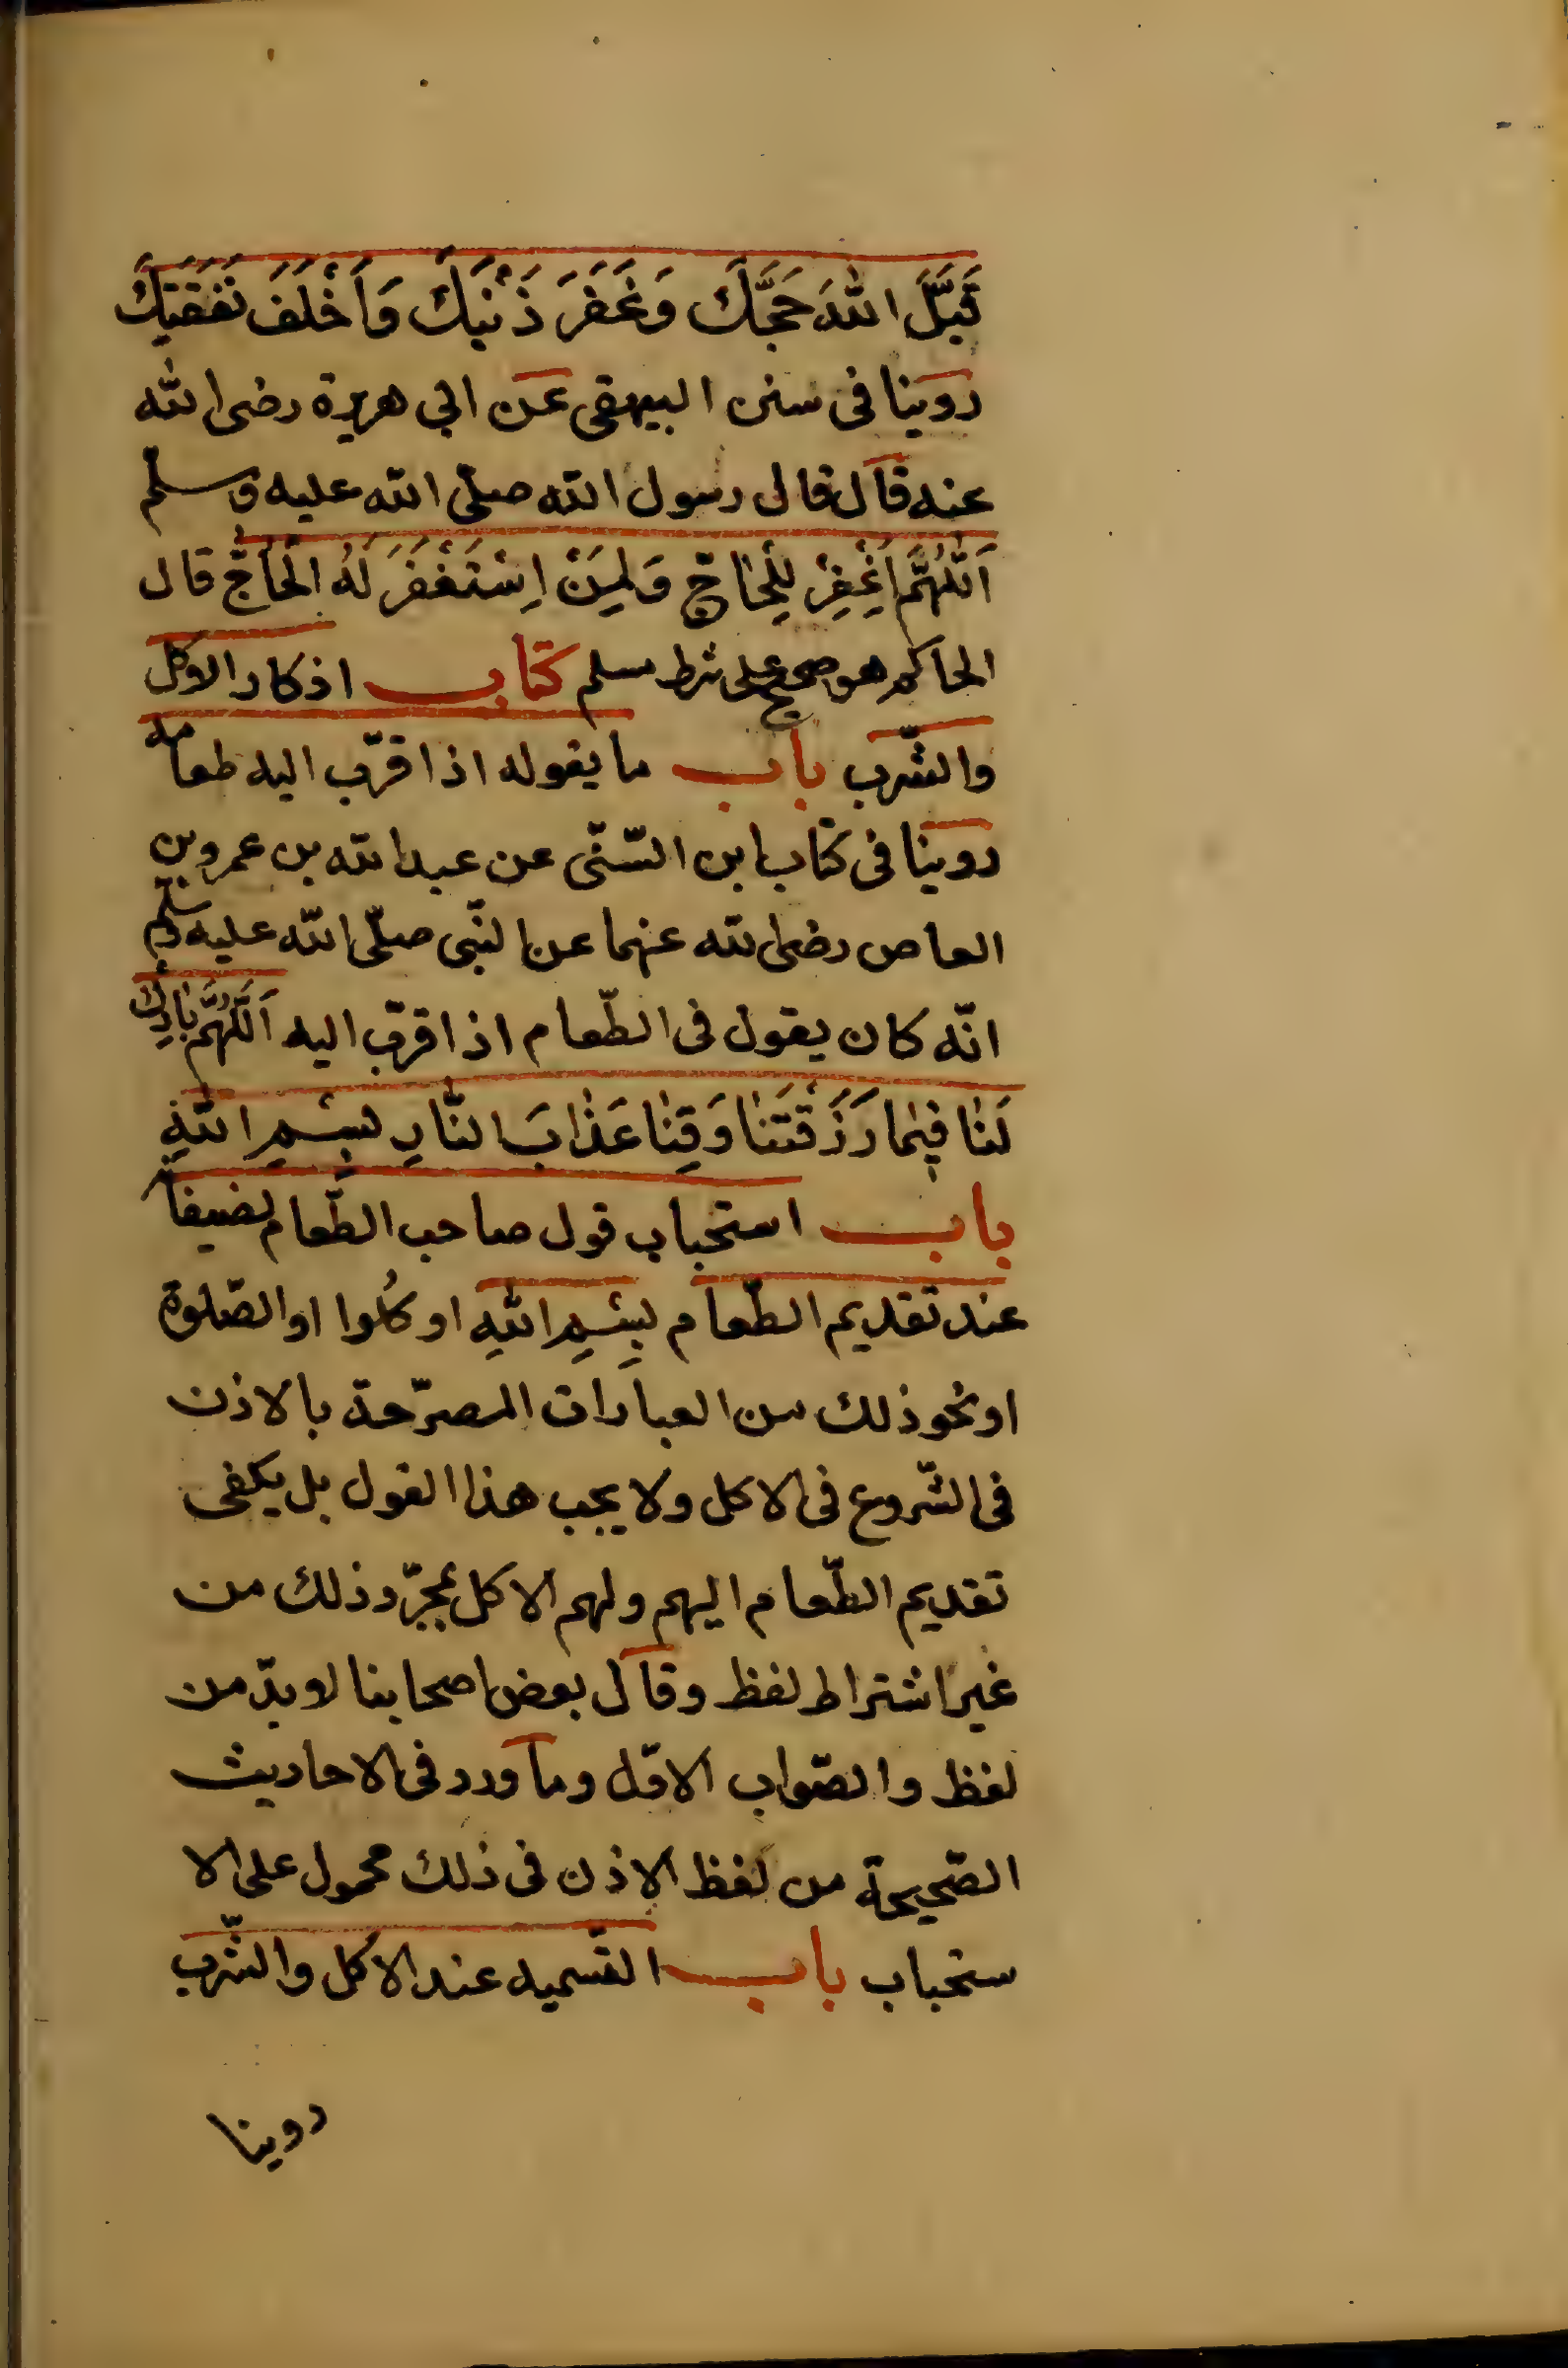 تَقَبَّلَ اللّٰهُ حَجَّكَ وَغَفَرَ ذَنْبَكَ وَاَخْلَفَ نَفَقَتَكَ
روينا فى سنن البيهقى عن ابي هريرة رضى الله
عنه قال قال رسول الله صلّى الله عليه وسلّم
اَللّٰهُمَّ اغْفِرْ لِلْحٰاجِّ وَلِمَنْ اِسْتَغْفَرَ لَهُ الْحٰاجُّ قال
الحاكم هو صحيح على شرط مسلم كتاب اذكار الاكل
والشّرب باب ما يقوله اذا قرّب اليه طعامه
روينا فى كتاب ابن السّنّى عن عبد الله بن عمرو بن
العاص رضى الله عنهما عن النّبى صلّى الله عليه وسلم
انّه كان يقول فى الطّعام اذا قرّب اليه اَللّٰهُمَّ بٰارِكْ
لَنٰا فِيمٰا رَزَقْتَنٰا وَقِنٰا عَذٰابَ النّٰارِ بِسْمِ اللّٰهِ
باب استحباب قول صاحب الطّعام لضيفانه
عند تقديم الطّعام بِسْمِ اللّٰهِ او كُلوا او الصّلوة
او نحو ذلك من العبارات المصرّحة بالاذن
فى الشّروع فى الاكل ولا يجب هذا القول بل يكفى
تقديم الطّعام اليهم ولهم الاكل بمجرّد ذلك من
غير اشتراط لفظ وقال بعض اصحابنا لا بدّ من
لفظ والصّواب الاوّل وما ورد فى الاحاديث
الصّحيحة من لفظ الاذن فى ذلك محمول على الا
ستحباب باب التّسميه عند الاكل والشّرب
روينا